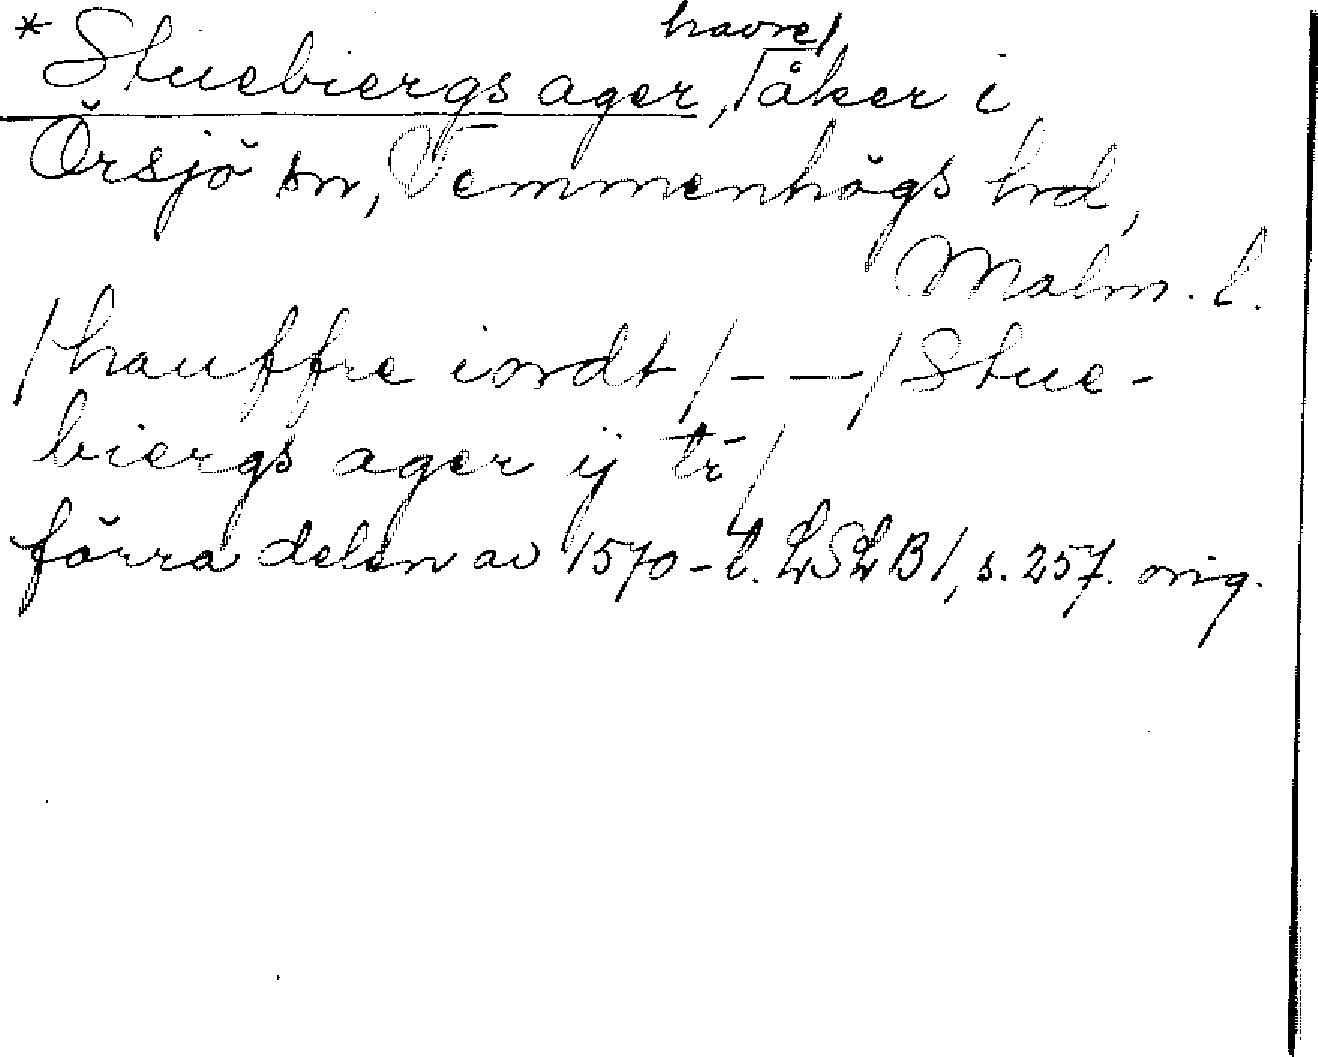 havre/
*Stuebiergs ager, åker i
Örsjö sn, Vemmenhögs hd,
Malm. l.
/hauffre iordt/ – – / Stue-
biergs ager ij tr/
förra delen av 1570-t. LSLB1, s. 257. orig.